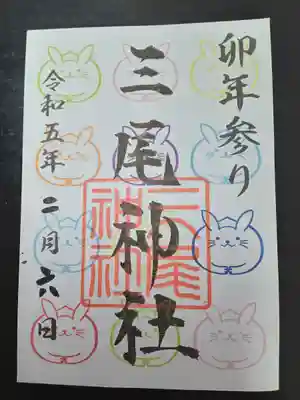 卯年参り
三尾神社
三尾神社
令和五年 二月六日